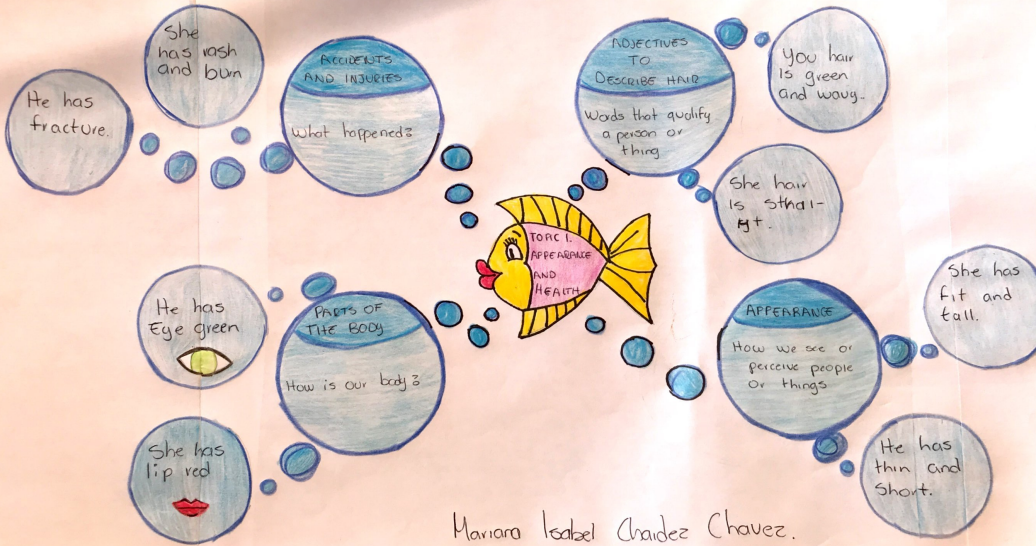 She
has rash
and burn
He has
fracture.
ACCIDENTS
AND INJURIES
What happened?
ADJECTIVES
TO
DESCRIBE HAIR
Words that qualify
a person or
thing
You hair
is green
and wavy.
She hair
is sthai-
ght.
TOPIC 1.
APPEARANCE
AND
HEALTH
He has
Eye green
PARTS OF
THE BODY
How is our body?
She has
lip red
APPEARANCE
How we see or
perceive people
or things
She has
fit and
tall.
He has
thin and
short.
Mariana Isabel Chaidez Chavez.